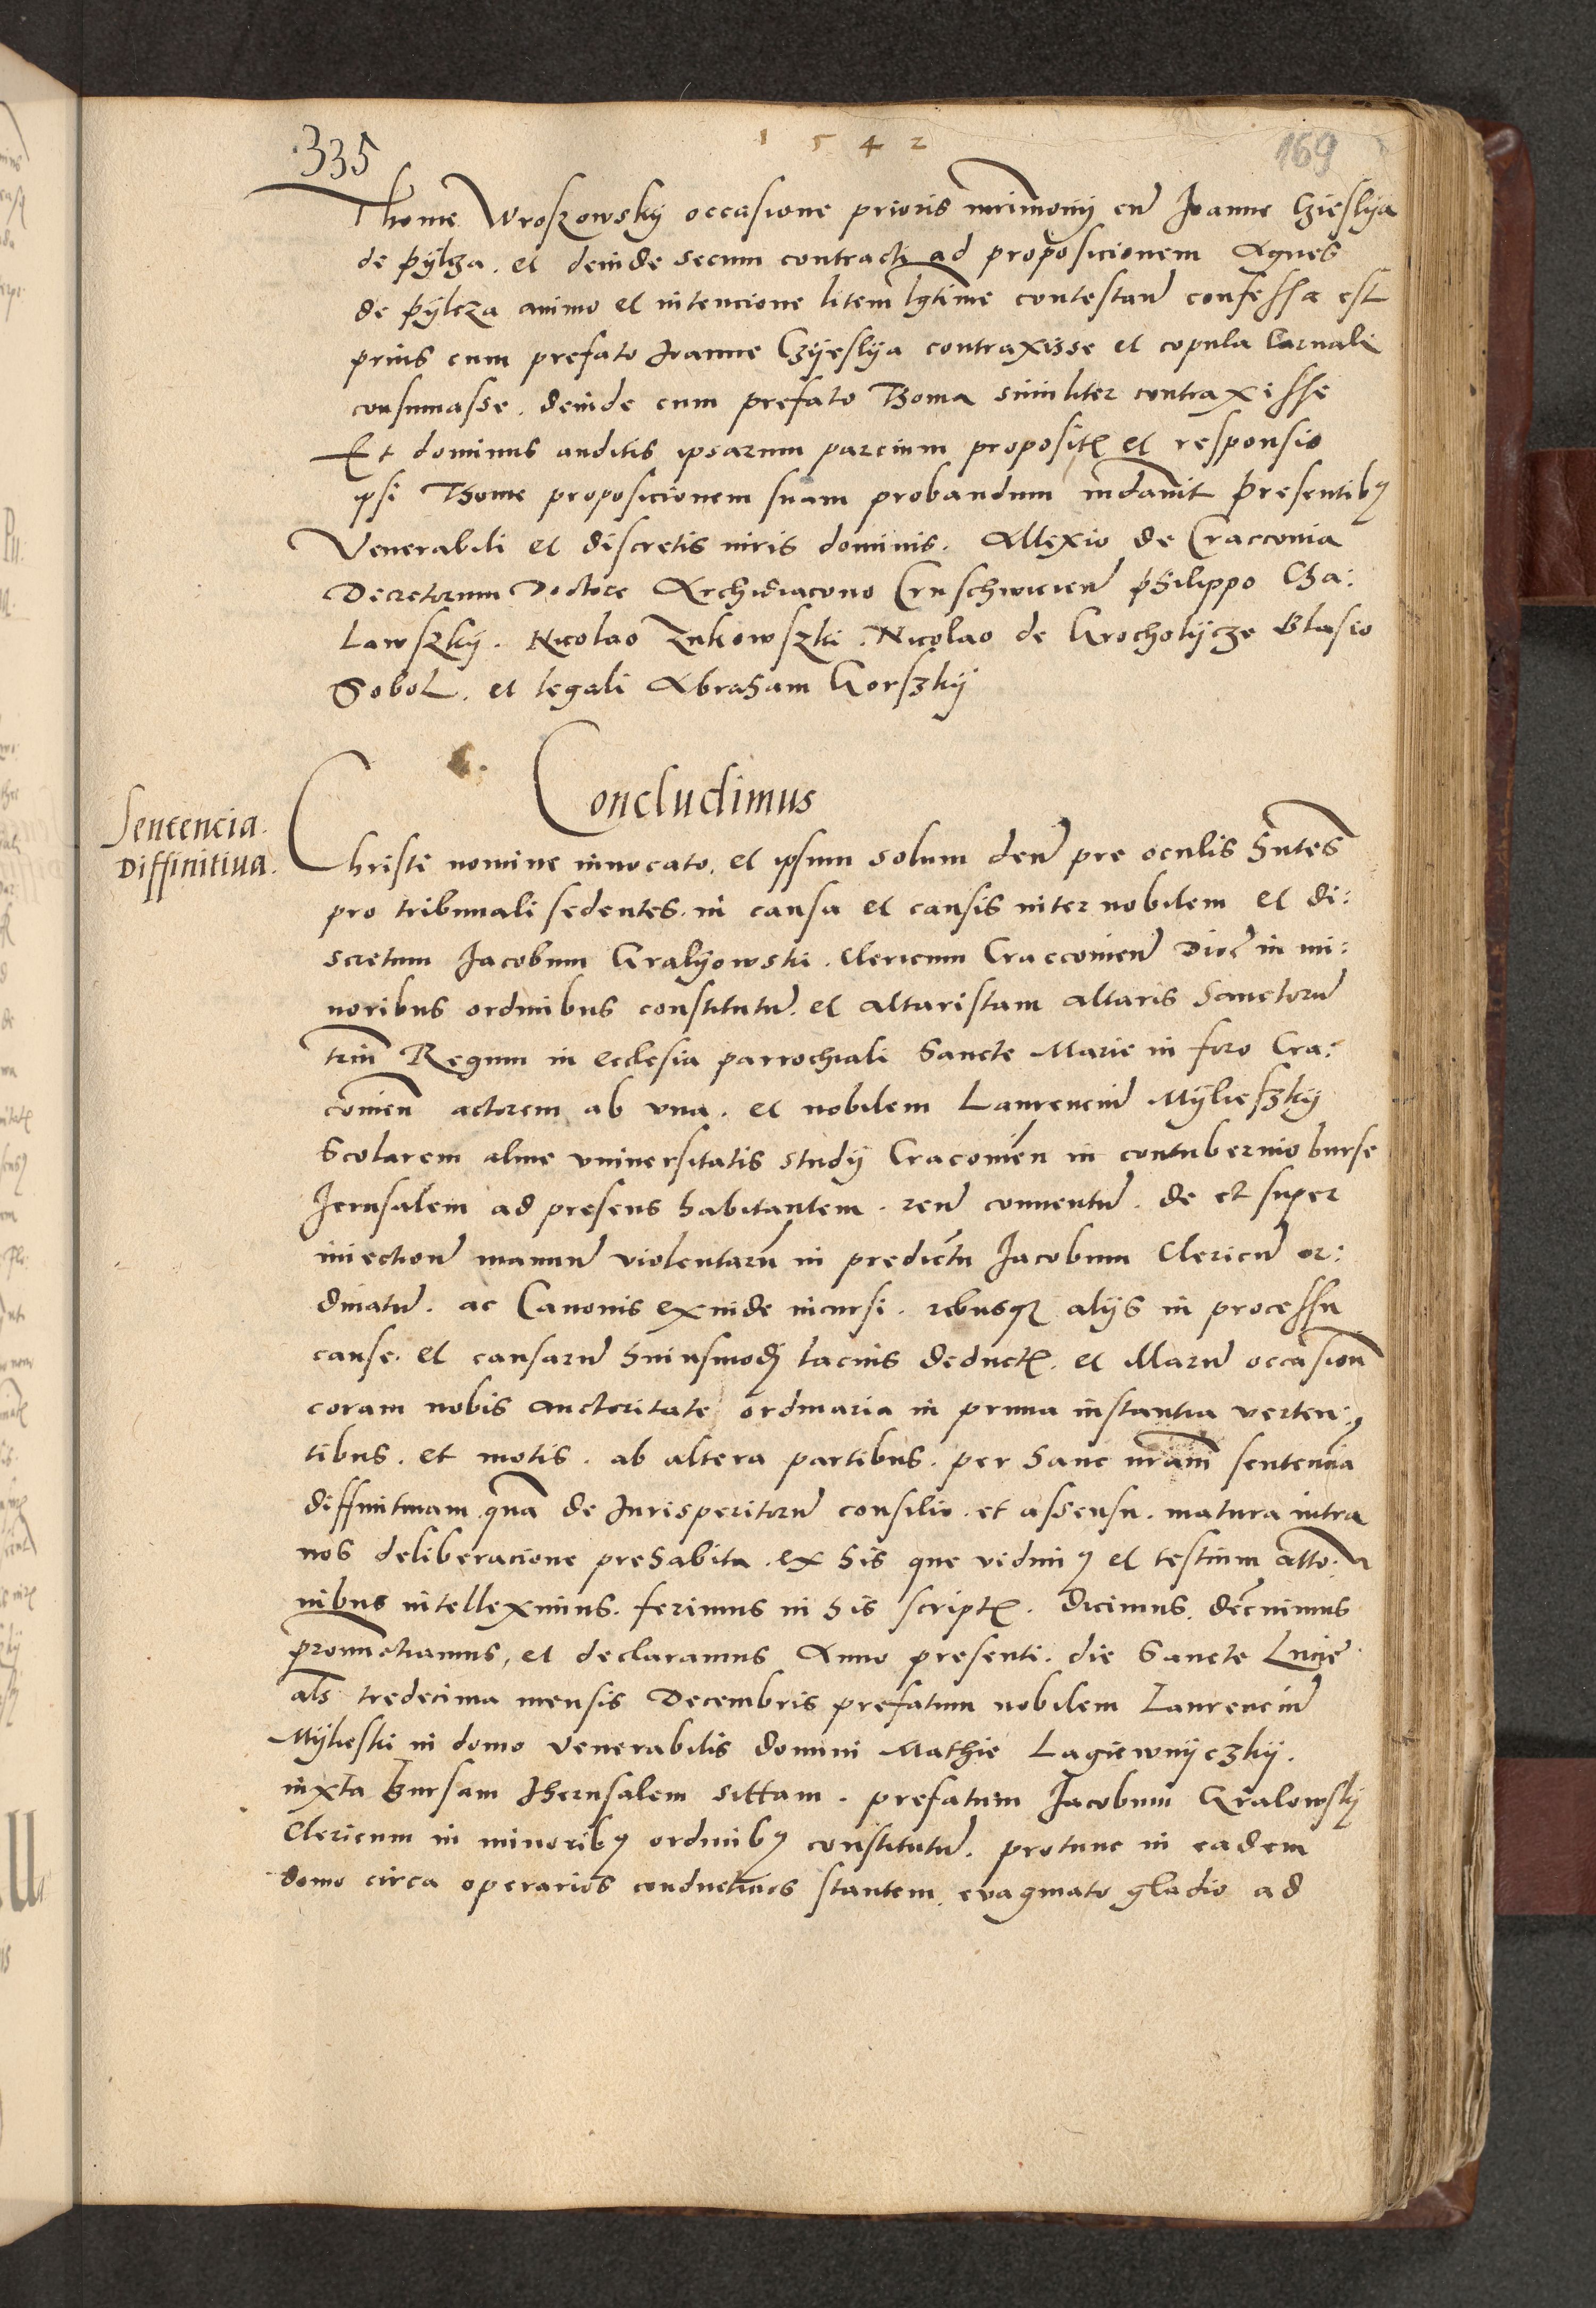 335
1542
169
Thome Wroszowsky occasione prioris mrimonij cu Joanne Czieslya
de Pylcza. et deinde secum contracti ad proposicionem Agnes
de Pylcza animo et intencione litem lgtime contestan confessa est
prius cum prefato Joanne Czyeslya contraxisse et copula Carnali
consumasse. deinde cum prefato Thoma similiter contraxisse
Et dominus auditis ipsarum parcium proposit et responsis
ipsi Thome proposicionem suam probandum mdauit Presentibus
Venerabili et discretis viris dominis. Allexio de Cracconia
Decretorum Doctore Archidiacono Cruschwicien Philippo Cha:
Lawszky. Nicolao Zukowszki. Nicolao de Grocholycze Blasio
Sobol. et legali Abraham Gorszky
C.
Concludimus
Sentencia.
Diffinitiua.
Christi nomine inuocato. et ipsum solum deu pre oculis hntes
pro tribunali sedentes. in causa et causis inter nobilem et di:
scretum Jacobum Gralyowski. Clericum Cracconien Dioc in mi:
noribus ordinibus constitutu. et altaristam altaris Sanctoru
triu Regum in ecclesia parrochiali Sancte Marie in foro Cra:
couien actorem ab vna. et nobilem Laurenciu Myliefzky
Scolarem alme vniuersitatis studij Cracouien in contubernio burse
Jerusalem ad presens habitantem. reu conuentu. de et super
iniectione manuu violentaru in predictu Jacobum Clericu or:
dinatu. ac Canonis exinde incursi. rebusque alijs in processu
cause. et causaru huiusmodi lacius deduct. et illaru occasion
coram nobis auctoritate ordinaria in prima instantia verten:
tibus. et motis. ab altera partibus. per hanc nram sentencia
diffinitiuam. qua de Jurisperitoru consilio. et assensu. matura intra
nos deliberacione prehabita. ex his que vidimus et testium atto:
nibus intellexmius. ferimus in his script. Dicimus. decnimus
pronuctiamus, et declaramus Anno presenti. die Sancte Lucie
als tredecima mensis Decembris prefatum nobilem Laurenciu
Myliefki in domo Venerabilis domini Mathie Lagiewnyczky.
iuxta Bursam Jherusalem sittam. prefatum Jacobum Gralowsky
Clericum in minoribus ordinibus constitutu. protunc in eadem
domo circa operarios conductinos stantem. evaginato gladio ad